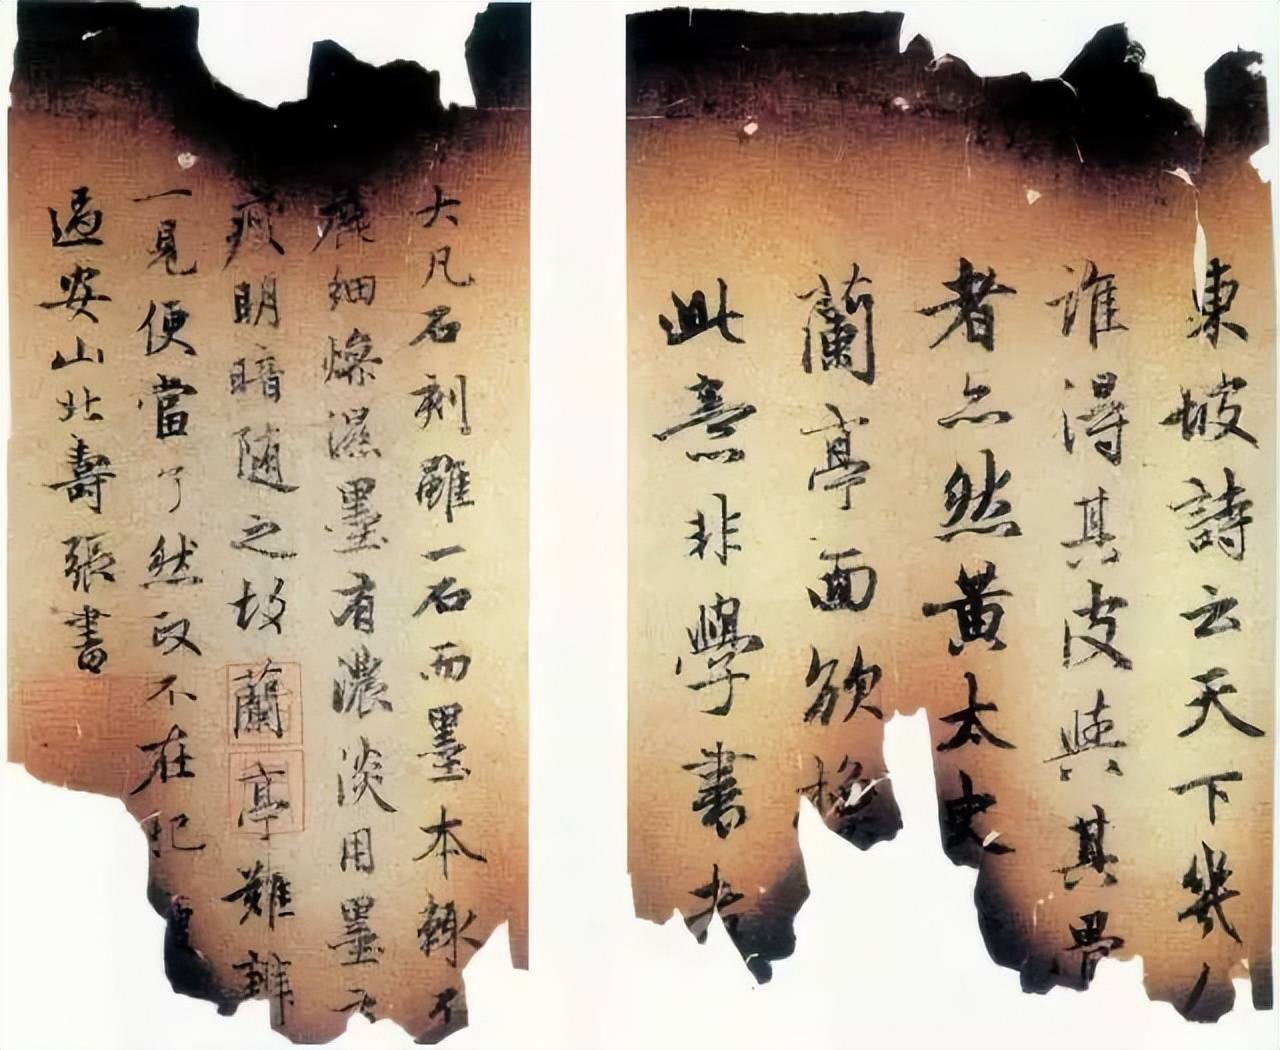 東坡詩云天下幾人
誰得其皮與其骨
者亦然黃太史
蘭亭面欲換
此意非學書者
大凡石刻雖一石而墨本輒不
細燥濕墨有濃淡用墨之
瘦明暗随之故蘭亭難辨
一見便當了然政不在肥
過安山北壽張書